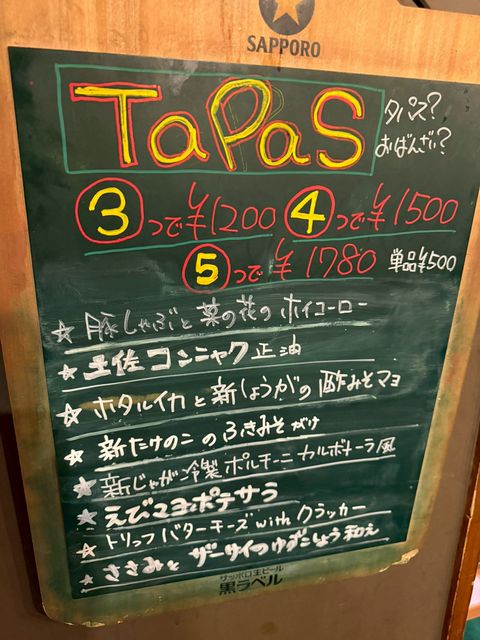 SAPPORO
TaPaS
タパス?
おばんざい?
③つで¥1200 ④つで¥1500
⑤つで¥1780 単品¥500
☆豚しゃぶと菜の花のホイコーロー
☆土佐コンニャク正油
☆ホタルイカと新しょうがの酢みそマヨ
☆新たけのこのふきみそがけ
★新じゃが冷製ポルチーニカルボナーラ風
★えびマヨポテサラ
☆トリュフバターチーズwithクラッカー
★ささみとザーサイのゆずこしょう和え
サッポロ生ビール
黒ラベル